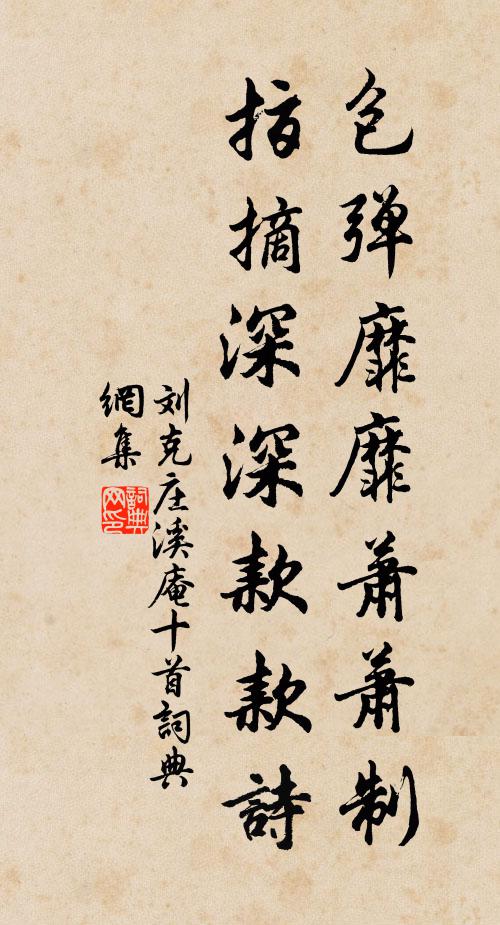 包弹靡靡萧萧制
指摘深深款款詩
刘克庄溪庵十首詞典
網集
詞典
网印